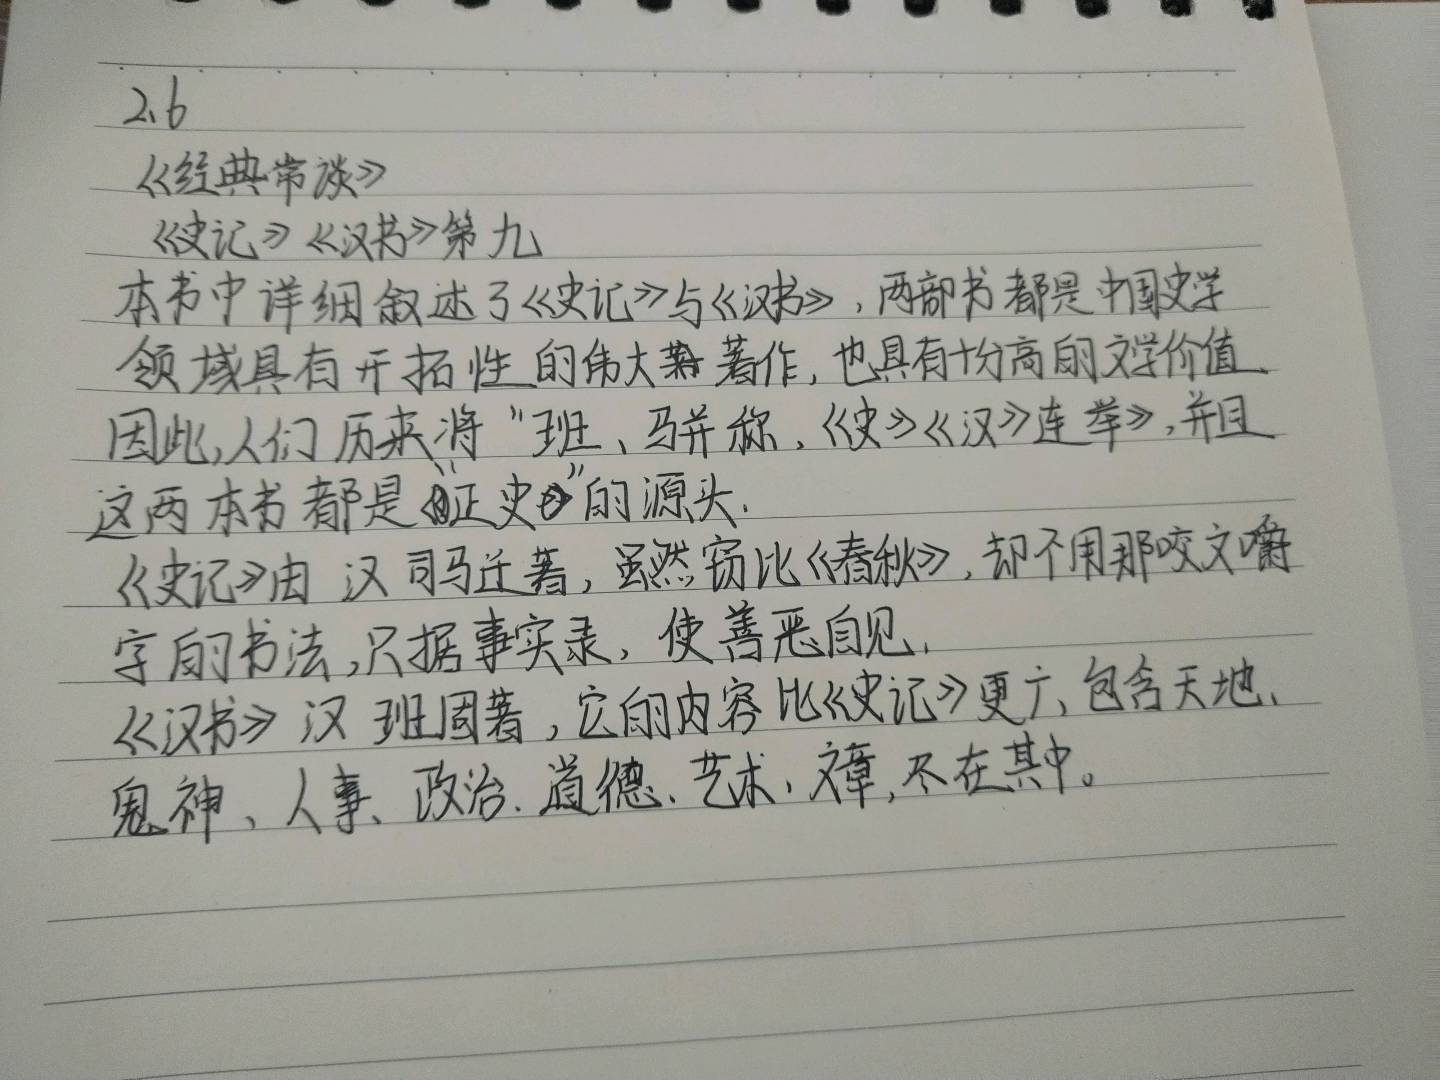 2.6
《经典常谈》
《史记》《汉书》第九
本书中详细叙述了《史记》与《汉书》，两部书都是中国史学
领域具有开拓性的伟大著作，也具有十分高的文学价值.
因此,人们历来将“班、马并称，《史》《汉》连举》,并且
这两本书都是“正史”的源头.
《史记》由汉司马迁著，虽然窃比《春秋》，却不用那咬文嚼
字的书法,只据事实录，使善恶自见.
《汉书》汉班固著，它的内容比《史记》更广、包含天地、
鬼神、人事、政治、道德、艺术、文章,尽在其中。